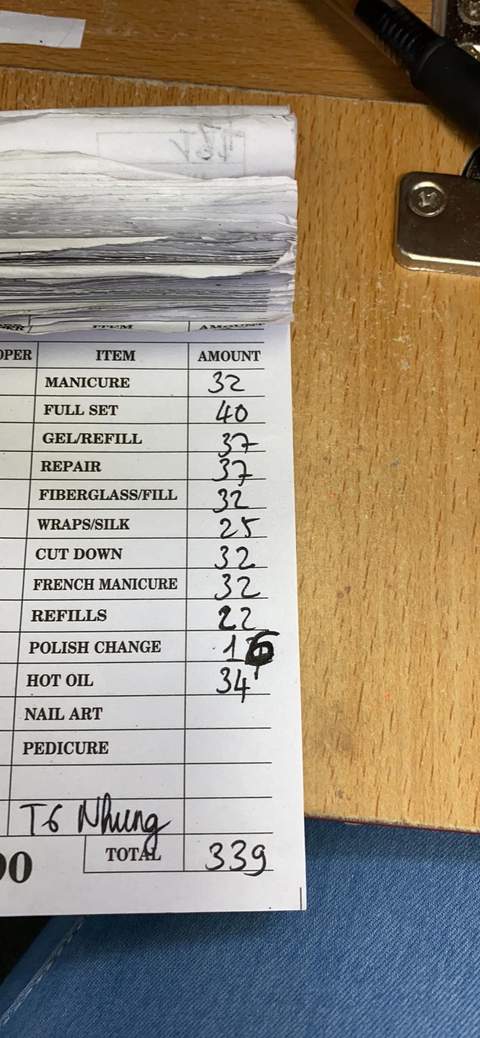 ITEM AMOUNT
OPER ITEM AMOUNT
MANICURE 32
FULL SET 40
GEL/REFILL 37
REPAIR 37
FIBERGLASS/FILL 32
WRAPS/SILK 25
CUT DOWN 32
FRENCH MANICURE 32
REFILLS 22
POLISH CHANGE 16
HOT OIL 34
NAIL ART
PEDICURE
T6 Nhung
00 TOTAL 339